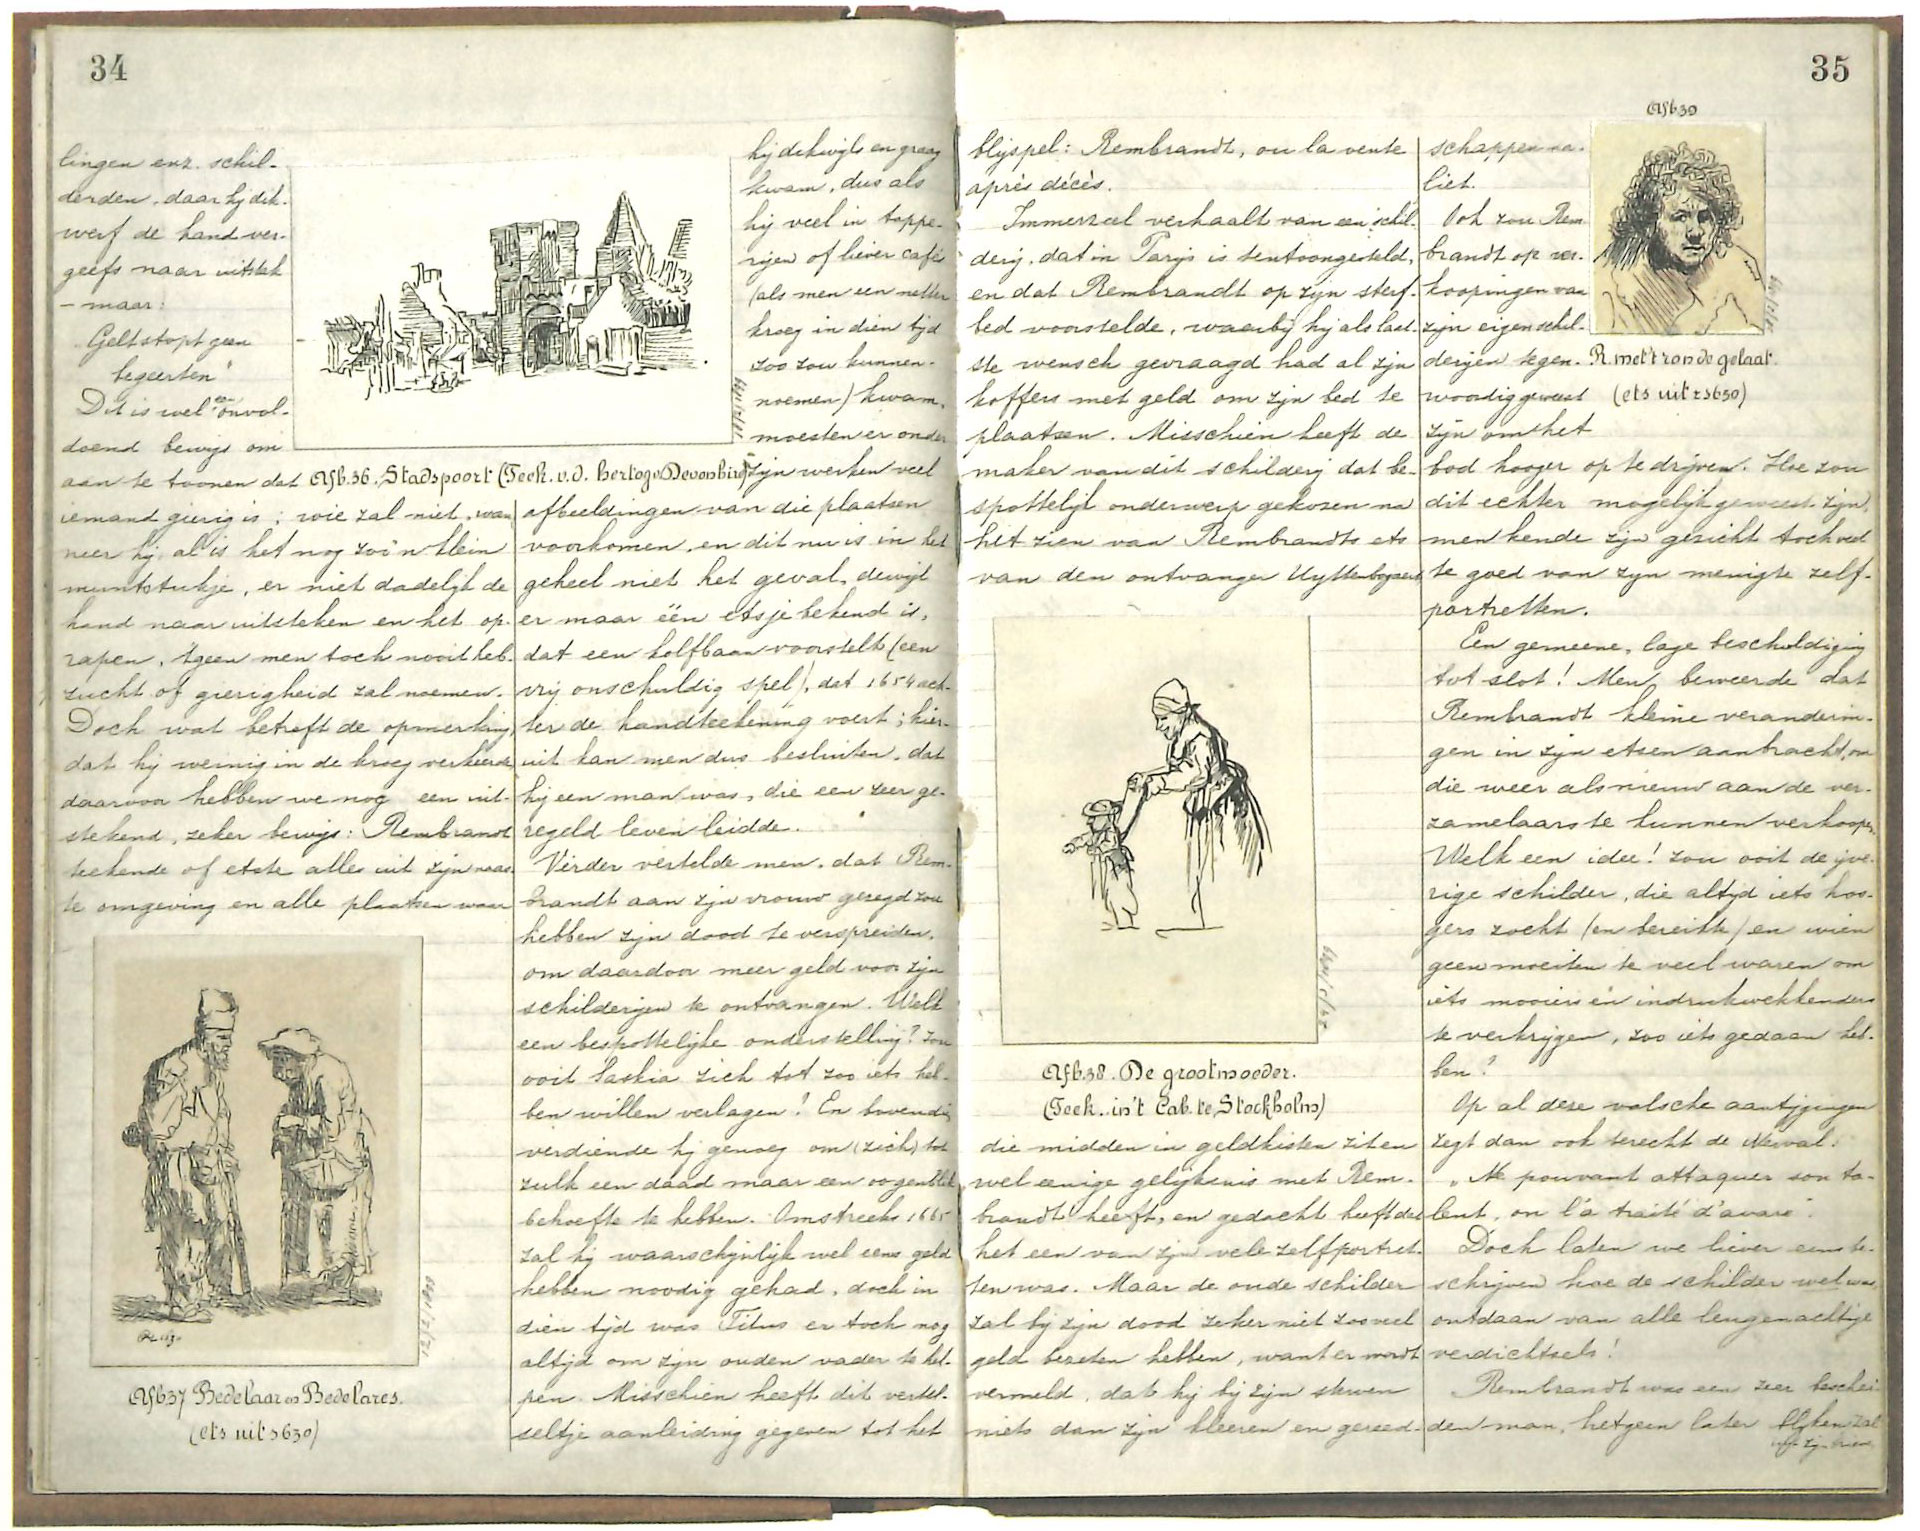 34
lingen enz. schil-
derden, daar hij dik-
werf de hand ver-
geefs naar uitstak
- maar:
"Gelt stopt geen
begeerten"
Dit is wel een onvol-
doend bewijs om
aan te toonen dat
iemand gierig is; wie zal niet, wan
neer hij al is het nog zoo'n klein
muntstukje, er niet dadelijk de
hand naar uitsteken en het op-
rapen, 'tgeen men toch nooit heb-
zucht of gierigheid zal noemen.
Doch wat betreft de opmerking,
dat hij weinig in de kroeg verkeerde
daarvoor hebben we nog een uit-
stekend, zeker bewijs: Rembrandt
teekende of etste alles uit zijn naas-
te omgeving en alle plaatsen waar
Afb.37 Bedelaar en Bedelares.
(ets uit 1630)
12/2/1898
Afb.36. Stadspoort (Teek. v.d. Hertog v Devonshire)
hij dikwijls en graag
kwam, dus als
hij veel in tappe-
rijen of liever cafés
(als men een netten
kroeg in dien tijd
zoo zou kunnen
noemen) kwam,
moesten er onder
zijn werken veel
afbeeldingen van die plaatsen
voorkomen, en dit nu is in het
geheel niet het geval, dewijl
er maar één etsje bekend is,
dat een kolfbaan voorstelt (een
vrij onschuldig spel), dat 1654 ach-
ter de handteekening voert; hier-
uit kan men dus besluiten, dat
hij een man was, die een zeer ge-
regeld leven leidde.
Verder vertelde men, dat Rem-
brandt aan zijn vrouw gezegd zou
hebben zijn dood te verspreiden,
om daardoor meer geld voor zijn
schilderijen te ontvangen. Welk
een bespottelijke onderstelling? Zou
ooit Saskia zich tot zoo iets heb-
ben willen verlagen! En bovendien
verdiende hij genoeg om (zich) tot
zulk een daad maar een oogenblik
behoefte te hebben. Omstreeks 1665
zal hij waarschijnlijk wel eens geld
hebben noodig gehad, doch in
dien tijd was Titus er toch nog
altijd om zijn ouden vader te hel-
pen. Misschien heeft dit vertel-
seltje aanleiding gegeven tot het
35
blijspel: Rembrandt, ou la vente
après décès.
Immerzeel verhaalt van een schil-
derij, dat in Parijs is tentoongesteld,
en dat Rembrandt op zijn sterf-
bed voorstelde, waarbij hij als laat-
ste wensch gevraagd had al zijn
koffers met geld om zijn bed te
plaatsen. Misschien heeft de
maker van dit schilderij dat be-
spottelijk onderwerp gekozen na
het zien van Rembrandts ets
van den ontvanger Uyttenbogaert
Afb.38. De grootmoeder.
(Teek. in 't Cab. te Stockholm)
die midden in geldkisten zit en
wel eenige gelijkenis met Rem-
brandt heeft, en gedacht heeft dat
het een van zijn vele zelfportret-
ten was. Maar de oude schilder
zal bij zijn dood zeker niet zooveel
geld bezeten hebben, want er wordt
vermeld, dat hij bij zijn sterven
niets dan zijn kleeren en gereed-
schappen na-
liet.
Ook zou Rem
brandt op ver-
koopingen van
zijn eigen schil-
derijen tegen-
woordig geweest
zijn om het
bod hooger op te drijven. Hoe zou
dit echter mogelijk geweest zijn,
men kende zijn gezicht toch veel
te goed van zijn menigte zelf-
portretten.
Afb.39
R. met 't ronde gelaat.
(ets uit ±1630)
Een gemeene, lage beschuldiging
tot slot! Men beweerde dat
Rembrandt kleine veranderin-
gen in zijn etsen aanbracht, om
die weer als nieuw aan de ver-
zamelaars te kunnen verkoopen.
Welk een idee! zou ooit de ijve-
rige schilder, die altijd iets hoo-
gers zocht (en bereikte) en wien
geen moeiten te veel waren om
iets mooiers en indrukwekkenders
te verkrijgen, zoo iets gedaan heb-
ben?
Op al deze valsche aantijgingen
zegt dan ook terecht de Nerval:
"Ne pouvant attaquer son ta-
lent, on l'a traité d'avare".
Doch laten we liever eens be-
schrijven hoe de schilder wel was
ontdaan van alle leugenachtige
verdichtsels!
Rembrandt was een zeer beschei-
den man, hetgeen later blijken zal
uit zijn brieven